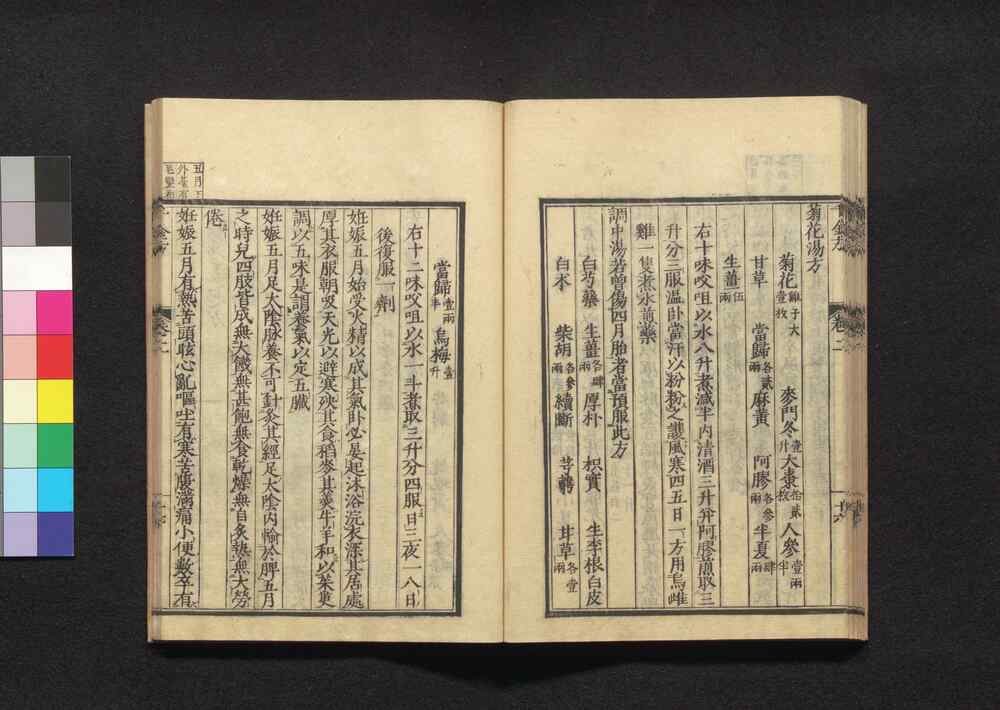 菊花湯方
菊花如雞子大壹枚 麥門冬壹升 大棗拾貳枚 人參壹兩半
甘草 當歸各貳兩 麻黃 阿膠各參兩 半夏肆兩
生薑伍兩
右十味㕮咀以水八升煮減半內清酒三升并阿膠煎取三
升分三服溫臥當汗以粉粉之護風寒四五日一方用烏雌
雞一隻煮水煎藥
調中湯若曾傷四月胎者當預服此方
白芍藥 生薑各肆兩 厚朴 枳實 生李根白皮
白朮 柴胡各參兩 續斷 芎藭 甘草各壹兩
當歸壹兩半 烏梅壹升
右十二味㕮咀以水一斗煮取三升分四服日三夜一八日
後復服一劑
妊娠五月始受火精以成其氣臥必晏起沐浴浣衣深其居處
厚其衣服朝吸天光以避寒殃其食稻麥其羹牛羊和以茱萸
調以五味是謂養氣以定五臟
妊娠五月足太陰脉養不可針灸其經足太陰內輸於脾五月
之時兒四肢皆成無大饑無甚飽無食乾燥無自炙熱無大勞
倦
妊娠五月有熱苦頭眩心亂嘔吐有寒苦腹滿痛小便數卒有
卷二
卷二
十六